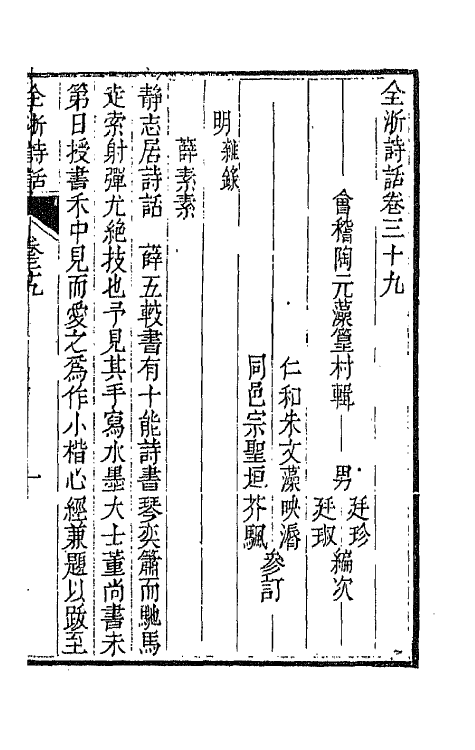 全浙詩話卷三十九
會稽陶元藻篁村輯 男
廷珍
廷珷
編次
仁和朱文藻映漘
同邑宗聖垣芥颿
參訂
明雜錄
薛素素
靜志居詩話 薛五較書有十能詩書琴奕簫而馳馬
走索射彈尤絕技也予見其手寫水墨大士董尚書未
第日授書禾中見而愛之爲作小楷心經兼題以跋至
全浙詩話 卷三十九 一